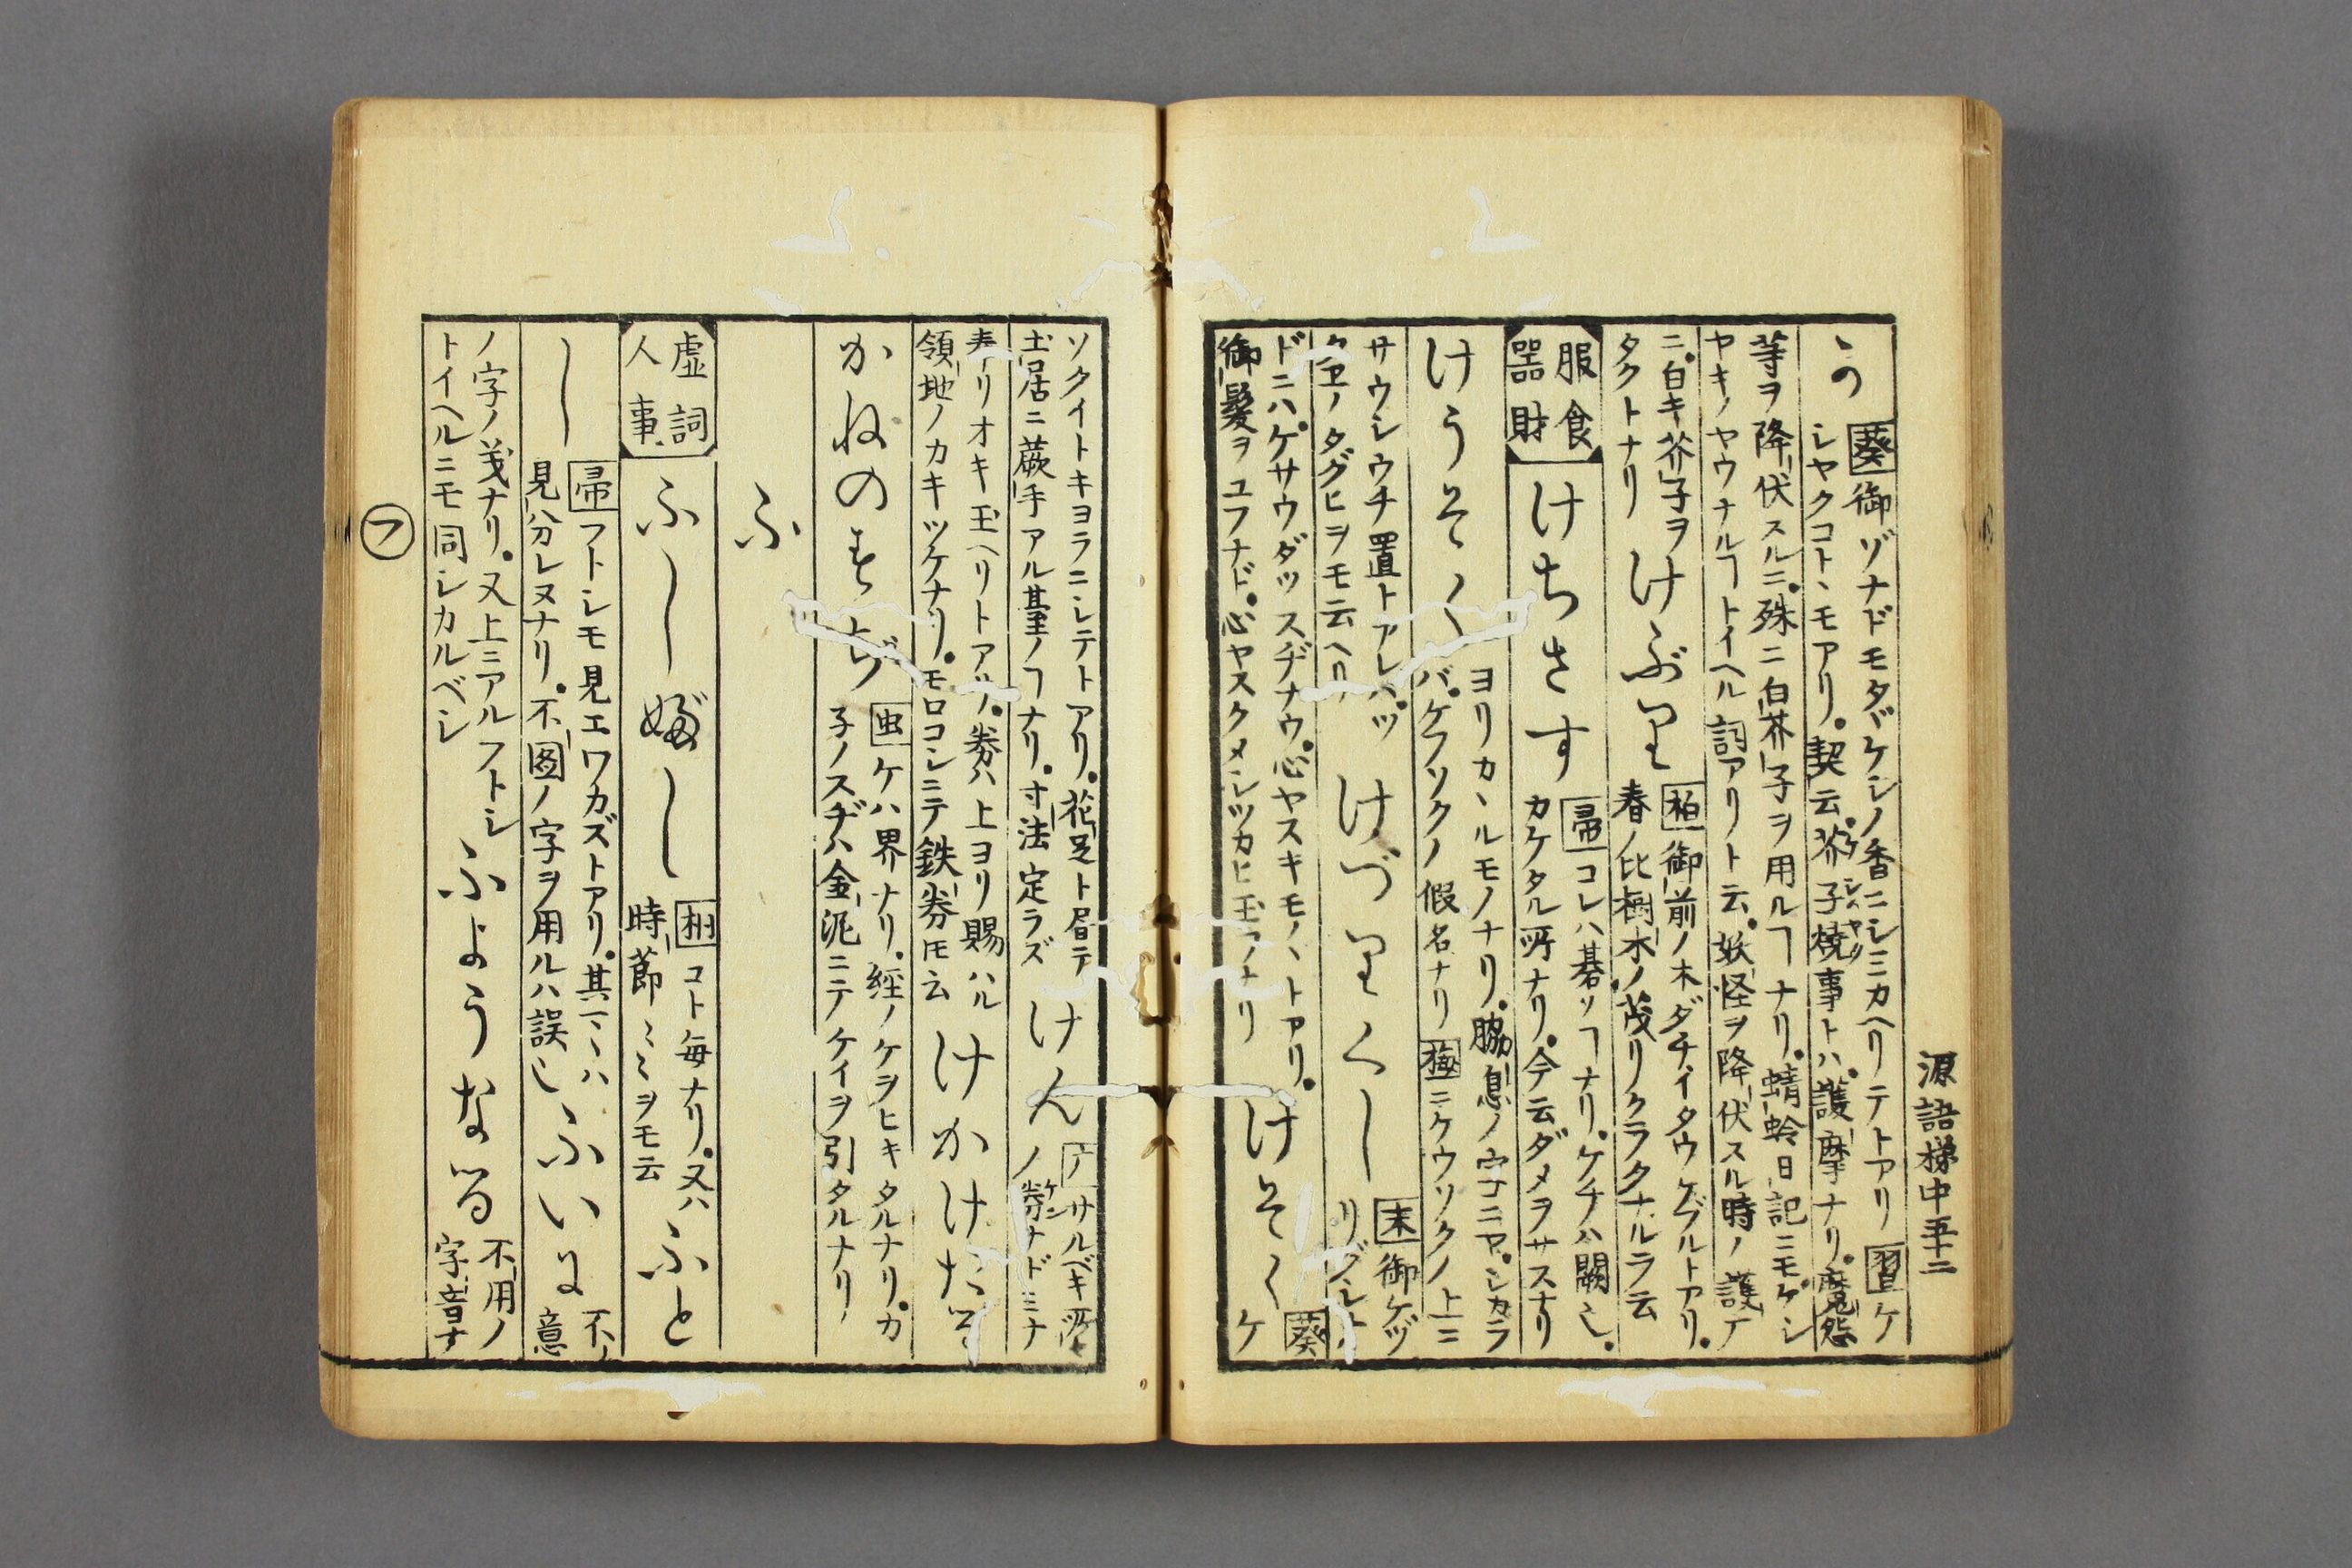 源語梯中五十二
ゝの
葵 御ゾナドモタヾケシノ香ニシミカヘリテトアリ 習 ケ
シヤクコトヽモアリ。契云。芥子燒事トハ。護摩ナリ。魔怨
等ヲ降伏スルニ。殊ニ白芥子ヲ用ルヿナリ。蜻蛉日記ニモ。ケシ
ヤキノヤウナルヿトイヘル詞アリト云。妖怪ヲ降伏スル時ノ護マ
ニ。白キ芥子ヲ
タクトナリ
けぶり
柏 御前ノ木ダチイタウケブルトアリ。
春ノ比樹木ノ茂リクラクナルヲ云
服食
器財
けちさす
帚 コレハ碁ノヿナリ。ケチハ闕也。
カケタル所ナリ。今云ダメヲサスナリ
けうそく
ヨリカヽルモノナリ。脇息ノ字ニヤ。シカラ
バ。ケフソクノ假名ナリ 梅 ニケウソクノ上ニ
サウシウチ置トアレバ。ツ
クヱノタグヒヲモ云ヘリ
けづりくし
末 御ケヅ
ドニハ。ケサウダツスヂナウ。心ヤスキモノヽトアリ。
御髮ヲユフナド。心ヤスクメシツカヒ玉フナリ
けそく
葵
ケ
ソクイトキヨラニシテトアリ。花足ト書テ
土居ニ蕨手アル臺ノヿナリ。寸法定ラズ
けん
サルベキ所
ノ券ナドミナ
奉リオキ玉ヘリトアリ。券ハ上ヨリ賜ハル
領地ノカキツケナリ。モロコシニテ鉄券モ云
けかけた
かねのすぢ
虫 ケハ界ナリ。經ノケヲヒキタルナリ。カ
子ノスヂハ金泥ニテケイヲ引タルナリ
ふ
虚詞
人事
ふし〴〵
コト毎ナリ。又ハ
時節〻〻ヲモ云
ふと
し
帚 フトシモ見エワカズトアリ。其
見分レヌナリ。不圖ノ字ヲ用ルハ誤也
ふいに
不ノ
意
ノ字ノ義ナリ。又上ニアルフトシ
トイヘルニモ同シカルベシ
ふようなる
不用ノ
字音ナ
フ